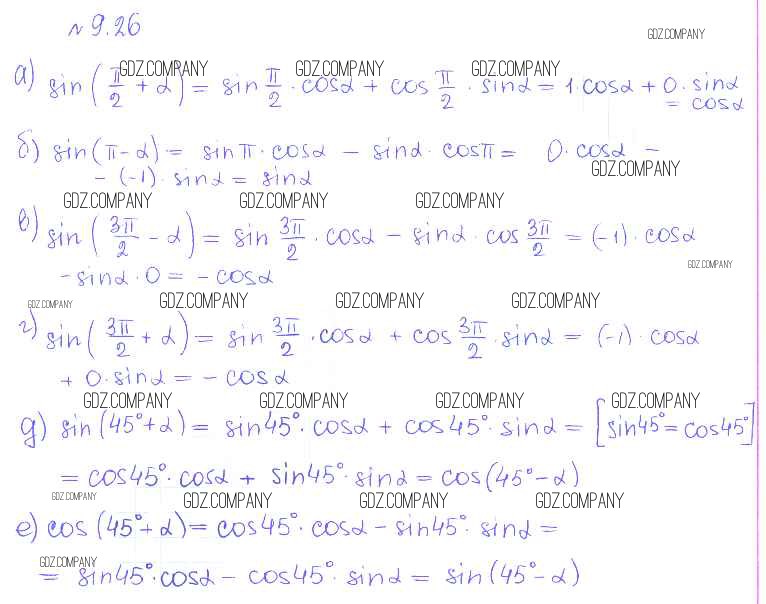 № 9.26
GDZ.COMPANY
GDZ.COMPANY GDZ.COMPANY GDZ.COMPANY
а) sin(π/2 + α) = sin π/2 · cosα + cos π/2 · sinα = 1·cosα + 0·sinα
= cosα
б) sin(π-α) = sinπ·cosα - sinα·cosπ = 0·cosα -
GDZ.COMPANY
- (-1)·sinα = sinα
GDZ.COMPANY GDZ.COMPANY GDZ.COMPANY
в) sin(3π/2 - α) = sin 3π/2 · cosα - sinα · cos 3π/2 = (-1)·cosα
GDZ.COMPANY
-sinα·0 = -cosα
GDZ.COMPANY GDZ.COMPANY GDZ.COMPANY GDZ.COMPANY
г) sin(3π/2 + α) = sin 3π/2 · cosα + cos 3π/2 · sinα = (-1)·cosα
+ 0·sinα = -cosα
GDZ.COMPANY GDZ.COMPANY GDZ.COMPANY GDZ.COMPANY
д) sin(45°+α) = sin45°·cosα + cos45°·sinα = [sin45°=cos45°]
= cos45°·cosα + sin45°·sinα = cos(45°-α)
GDZ.COMPANY GDZ.COMPANY GDZ.COMPANY GDZ.COMPANY
е) cos(45°+α) = cos45°·cosα - sin45°·sinα =
GDZ.COMPANY
= sin45°·cosα - cos45°·sinα = sin(45°-α)